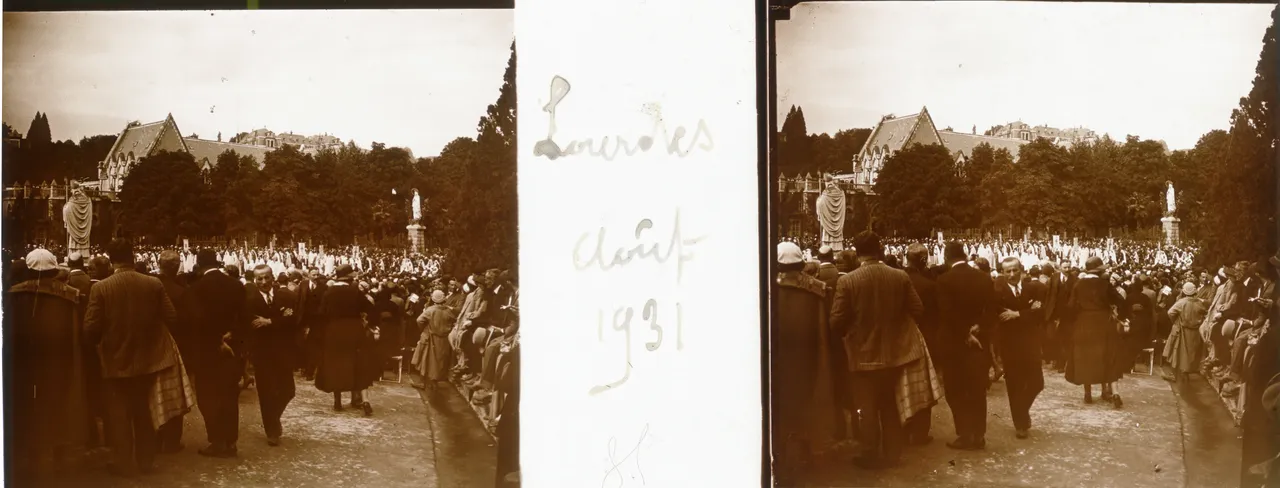 Lourdes
Août
1931